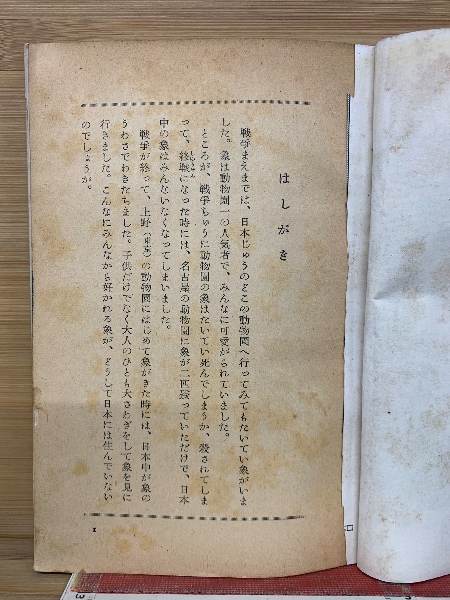 はしがき
戦争まえまでは、日本じゅうのどこの動物園へ行ってみてもたいてい象がいま
した。象は動物園一の人気者で、みんなに可愛がられていました。
ところが、戦争ちゅうに動物園の象はたいてい死んでしまうか、殺されてしま
って、終戦になった時には、名古屋の動物園に象が二匹残っていただけで、日本
中の象はみんないなくなってしまいました。
戦争が終って、上野(東京)の動物園にはじめて象がきた時には、日本中が象の
うわさでわきたちました。子供だけでなく大人のひとも大さわぎをして象を見に
行きました。こんなにみんなから好かれる象が、どうして日本には住んでいない
のでしょうか。
1